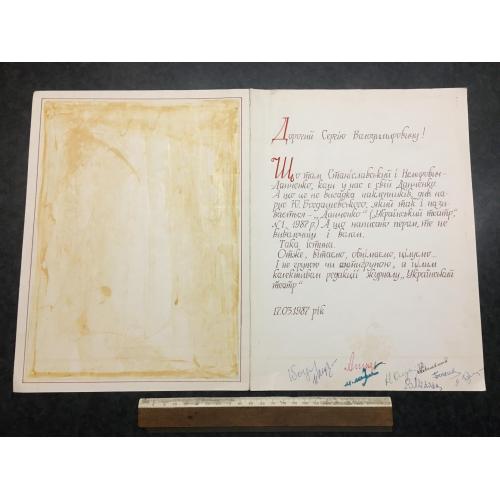 Дорогий Сергію Володимировичу!
Що там Станіславський і Немирович-
Данченко, коли у нас є свій Данченко.
А що це не вигадка наклепників, див. на-
рис Ю. Богдашевського, який так і нази-
вається – „Данченко" („Український театр",
№1, 1987 р.) А що написано пером, то не
вивалочиш і волам.
Така істина.
Отже, вітаємо, обнімаємо, цілуємо...
І не групою чи антигрупою, а цілим
колективом редакції журналу „Український
театр"
17.03.1987 рік